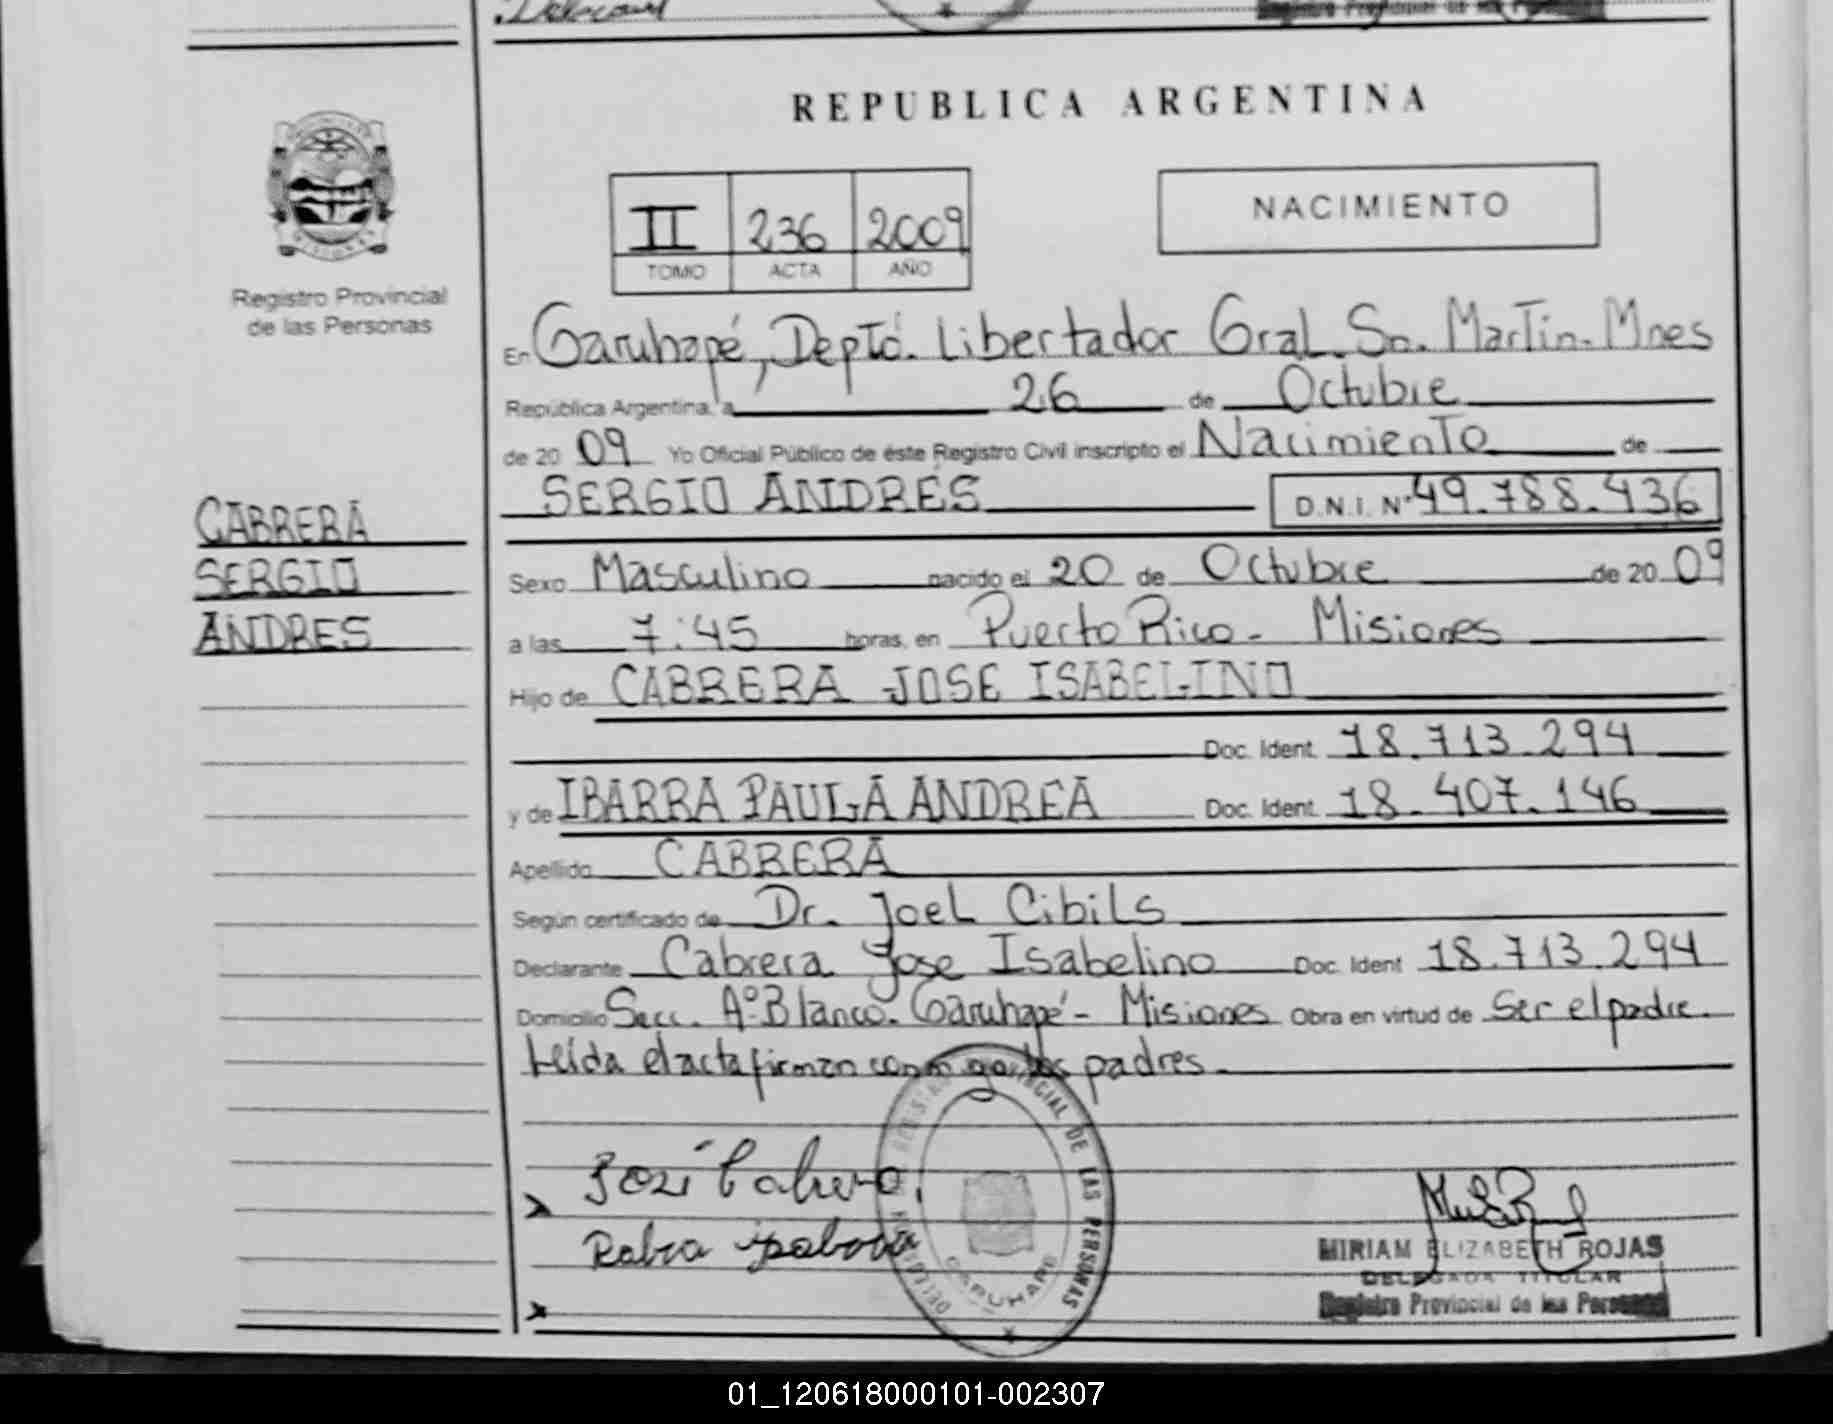 REPUBLICA ARGENTINA
II 236 2009
TOMO ACTA AÑO
NACIMIENTO
Registro Provincial
de las Personas
CABRERA
SERGIO
ANDRES
En Garuhapé, Deptó. Libertador Gral. Sn. Martin- Mnes
República Argentina, a 26 de Octubre
de 20 09 Yo Oficial Público de éste Registro Civil inscripto el Nacimiento de
SERGIO ANDRES D.N.I. Nº 49.788.436
Sexo Masculino nacido el 20 de Octubre de 20 09
a las 7:45 horas, en Puerto Rico - Misiones
Hijo de CABRERA JOSE ISABELINO
Doc. Ident. 18.713.294
y de IBARRA PAULA ANDREA Doc. Ident. 18.407.146
Apellido CABRERA
Según certificado de Dr. Joel Cibils
Declarante Cabrera Jose Isabelino Doc. Ident 18.713.294
Domicilio Secc. Aº Blanco. Garuhapé - Misiones Obra en virtud de Ser el padre.
Leída el acta firman conmigo los padres.
DE LAS PERSONAS
GARUHAPE
MIRIAM ELIZABETH ROJAS
DELEGADA TITULAR
Registro Provincial de las Personas
01_120618000101-002307